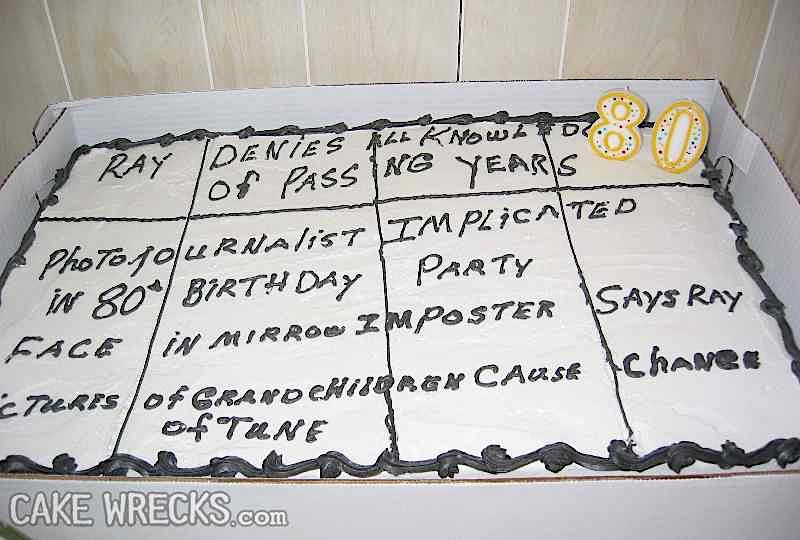 RAY DENIES ALL KNOWL
80
OF PASSING YEARS
PHOTOJOURNALIST IMPLICATED
IN 80th BIRTHDAY PARTY
FACE IN MIRROW IMPOSTER SAYS RAY
ICTURES OF GRANDCHILDREN CAUSE CHANGE
OF TUNE
CAKE WRECKS.com